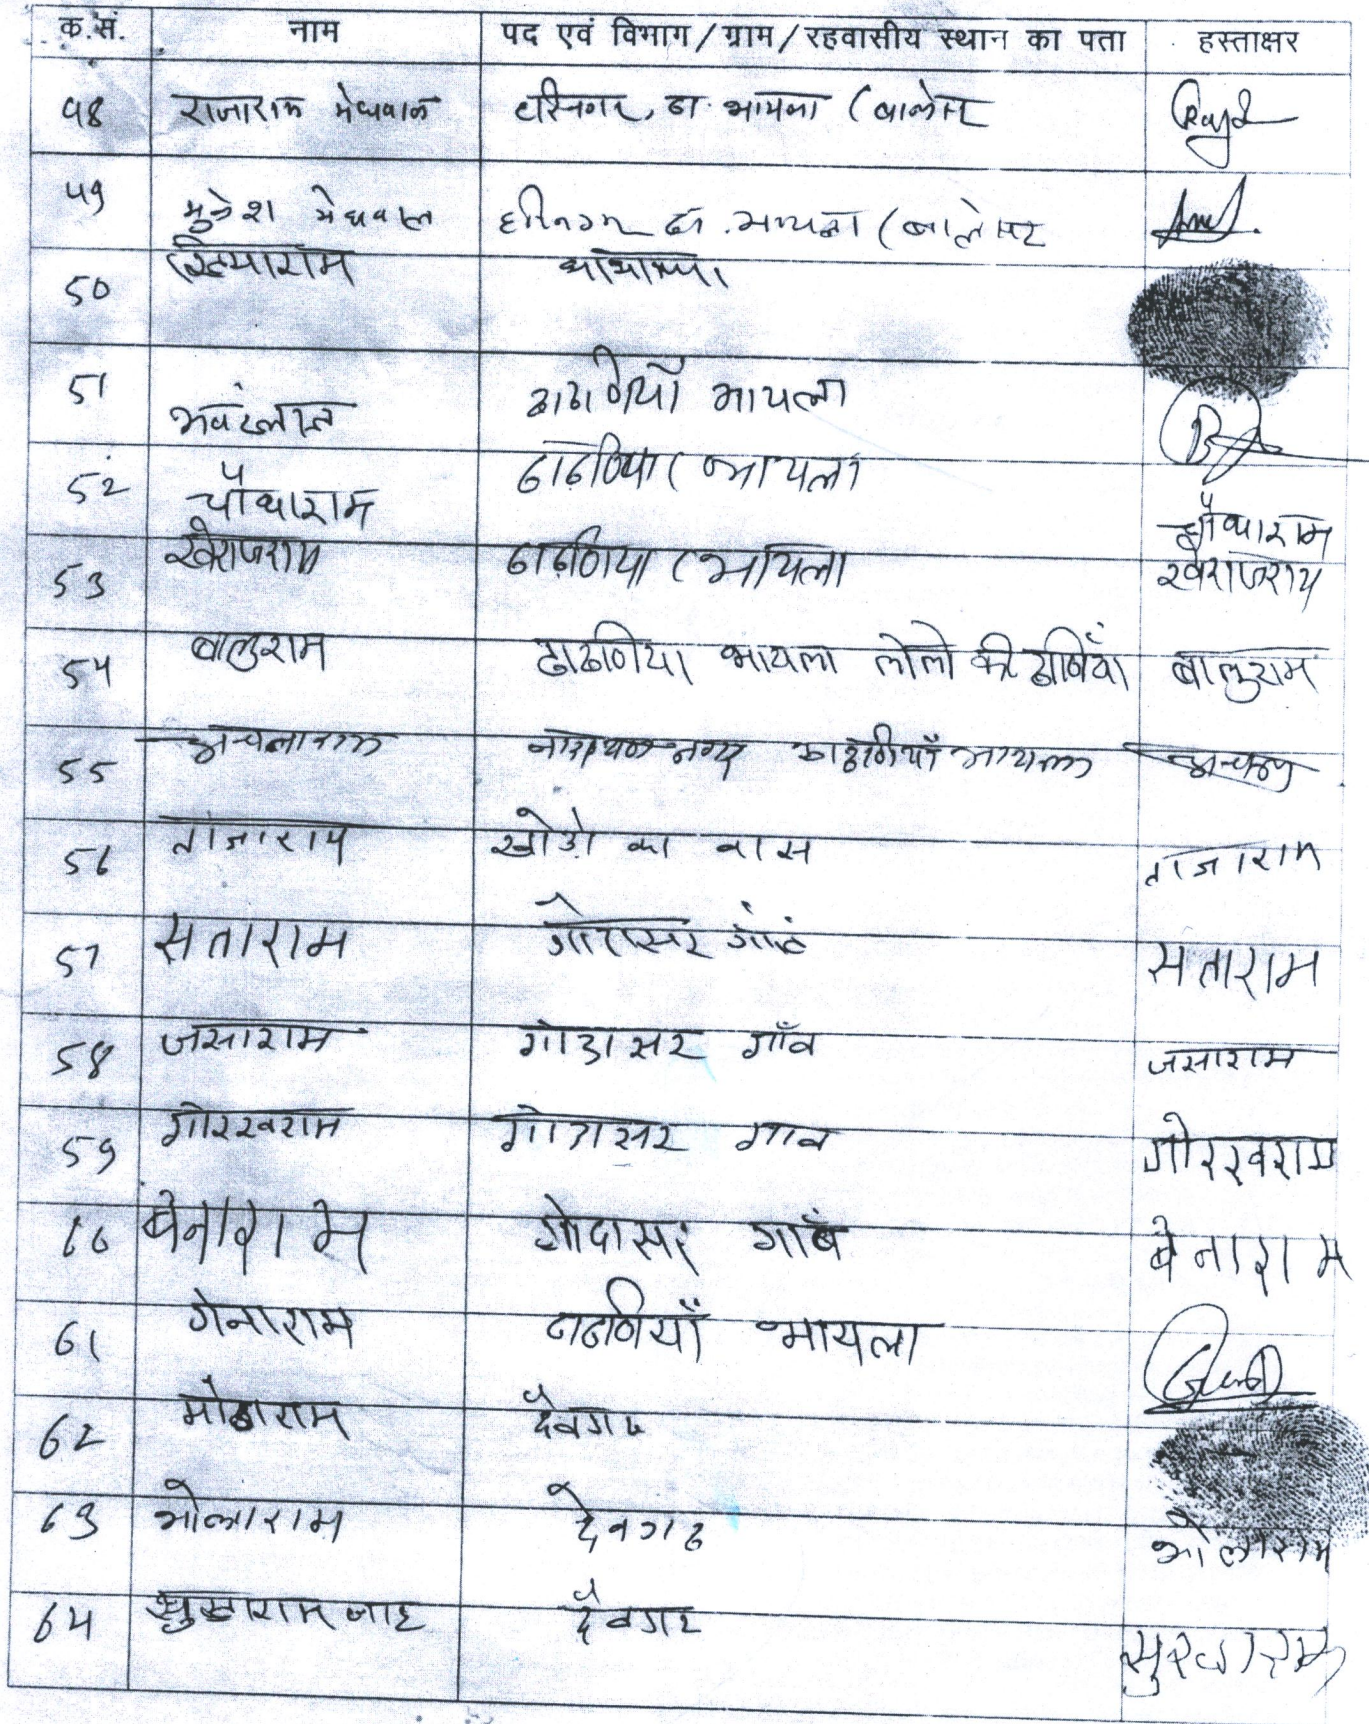 क.सं. नाम पद एवं विभाग/ग्राम/रहवासीय स्थान का पता हस्ताक्षर
48 राजाराम मेघवाल हरिनगर, ढा. भायला (बालेसर
49 मुकेश मेघवाल हरिनगर ढा. भायला (बालेसर
50
51 भवंरलाल ढाढणियाँ भायला
52 चौथाराम ढाढणिया भायला चौथाराम
53 खेराजराम ढाढणिया भायला खेराजराम
54 बालुराम ढाढणिया भायला की ढाणियाँ बालुराम
55 अचलाराम नगर ढाढणियाँ भायला
56 ताजाराम का वास ताजाराम
57 सताराम गोदासर गांव सताराम
58 जसाराम गोडासर गाँव जसाराम
59 गोरखराम गोडासर गाव गोरखराम
60 बेनाराम गोदासर गाँव बेनाराम
61 गेनाराम ढाढणियाँ भायला
62 देवगढ
63 भोलाराम देवगढ भोलाराम
64 देवगढ सुखाराम